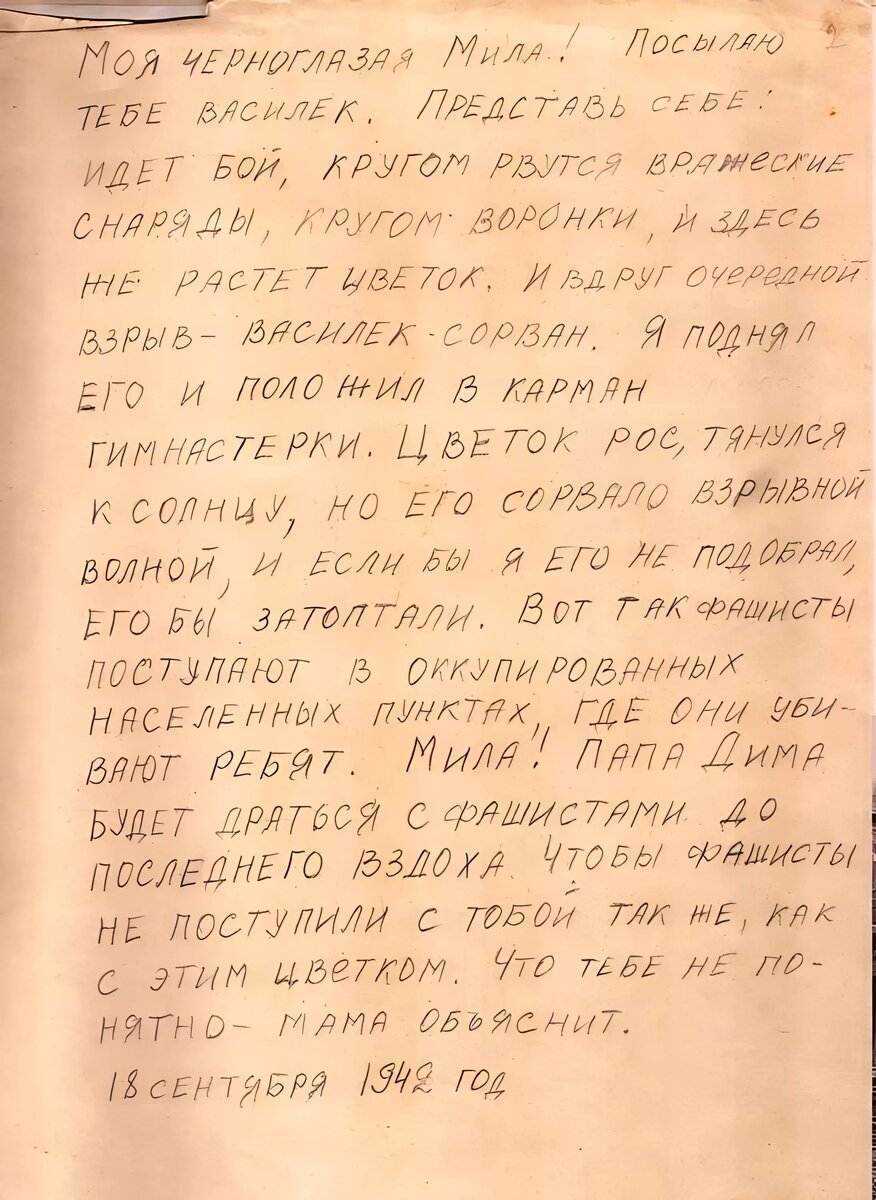 2
Моя черноглазая Мила! Посылаю
тебе василек. Представь себе:
идет бой, кругом рвутся вражеские
снаряды, кругом воронки, и здесь
же растет цветок. И вдруг очередной
взрыв – василек сорван. Я поднял
его и положил в карман
гимнастерки. Цветок рос, тянулся
к солнцу, но его сорвало взрывной
волной, и если бы я его не подобрал,
его бы затоптали. Вот так фашисты
поступают в оккупированных
населенных пунктах, где они уби-
вают ребят. Мила! Папа Дима
будет драться с фашистами до
последнего вздоха. Чтобы фашисты
не поступили с тобой так же, как
с этим цветком. Что тебе не по-
нятно – мама объяснит.
18 сентября 1942 год